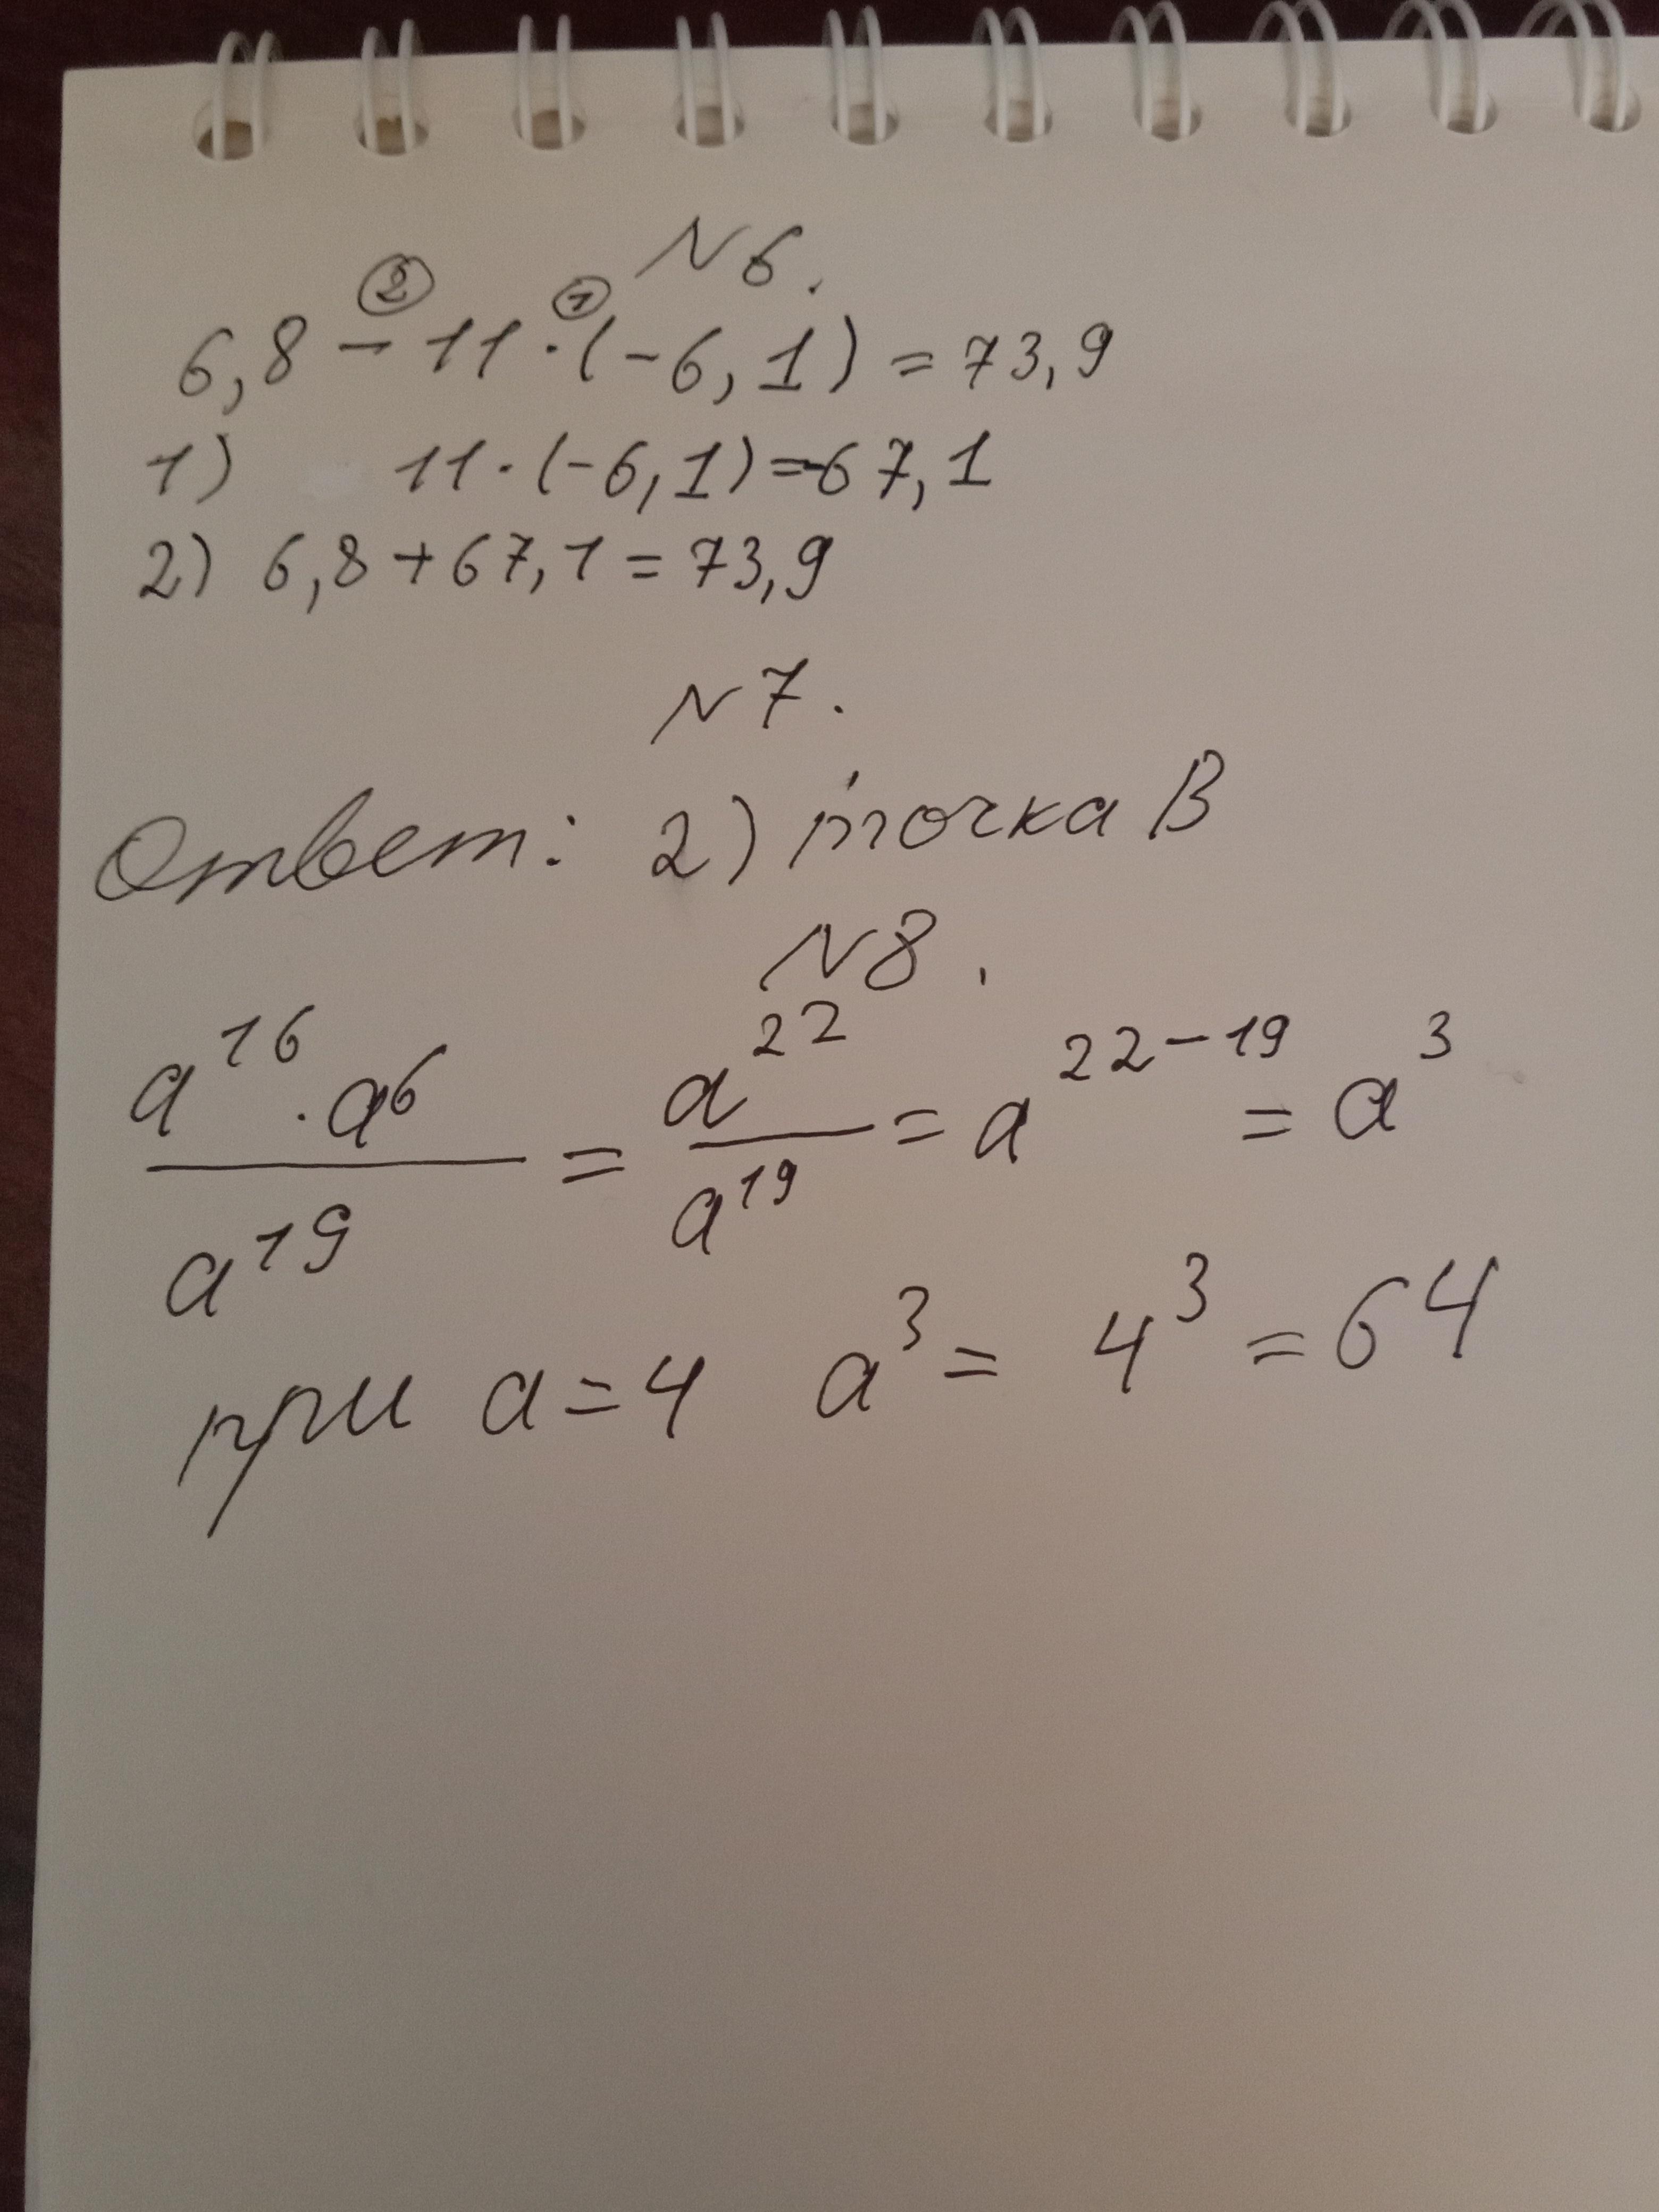 N6.
② ①
6,8 - 11 · (-6,1) = 73,9
1) 11 · (-6,1) = -67,1
2) 6,8 + 67,1 = 73,9
N7.
Ответ: 2) точка В
N8.
a^16 · a^6 / a^19 = a^22 / a^19 = a^22-19 = a^3
при a = 4 a^3 = 4^3 = 64